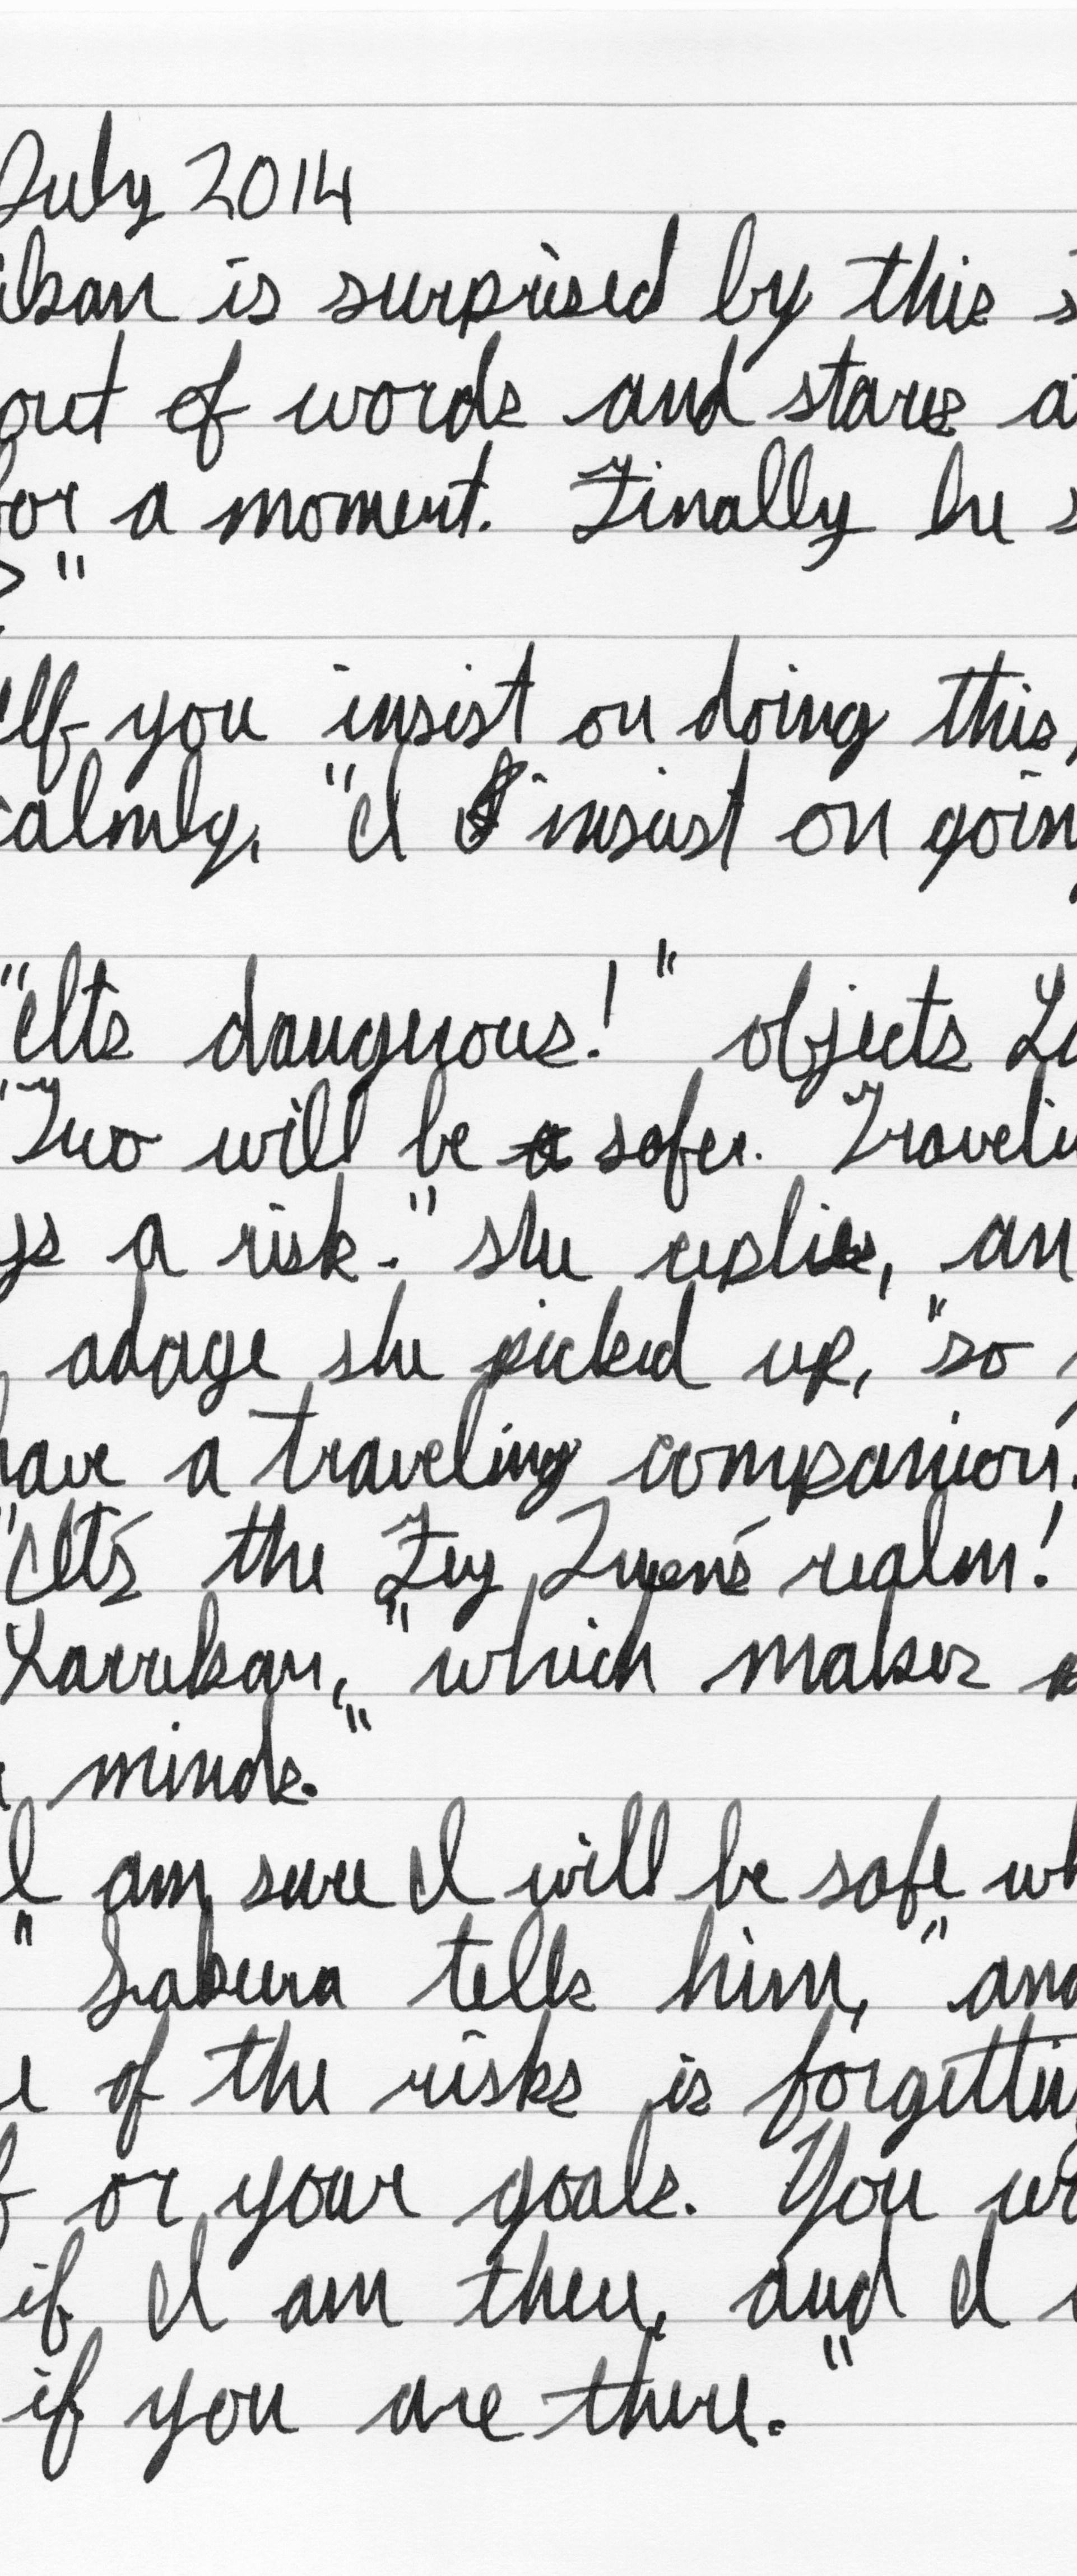 July 2014
ikan is surprised by this s
out of words and stares a
for a moment. Finally he s
?"
If you insist on doing this,
calmly. "I insist on going
"Its dangerous!" objects La
"Two will be safer. Traveli
ys a risk." she replies, an
adage she picked up, "so y
have a traveling companion.
"It's the Fey Queen's realm!
Larrikan, "which makes
minds."
I am sure I will be safe wh
" Sakura tells him, "and
e of the risks is forgettin
f or your goals. You wo
if I am there, and I w
if you are there."